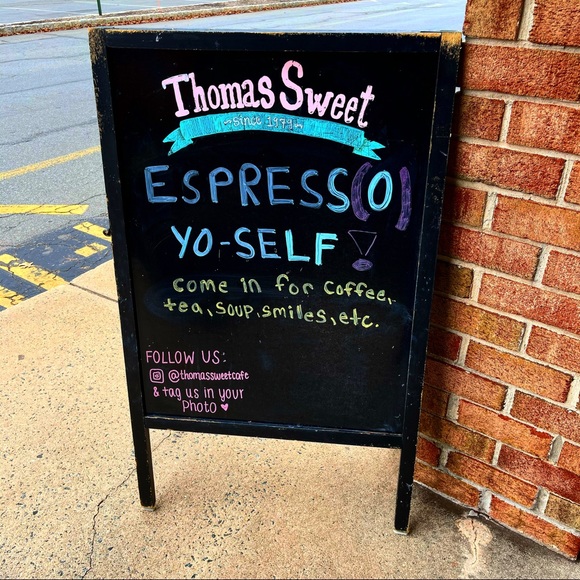 Thomas Sweet
~since 1979~
ESPRESS(O)
YO-SELF!
come in for coffee,
tea, soup, smiles, etc.
FOLLOW US:
@thomassweetcafe
& tag us in your
Photo ♥